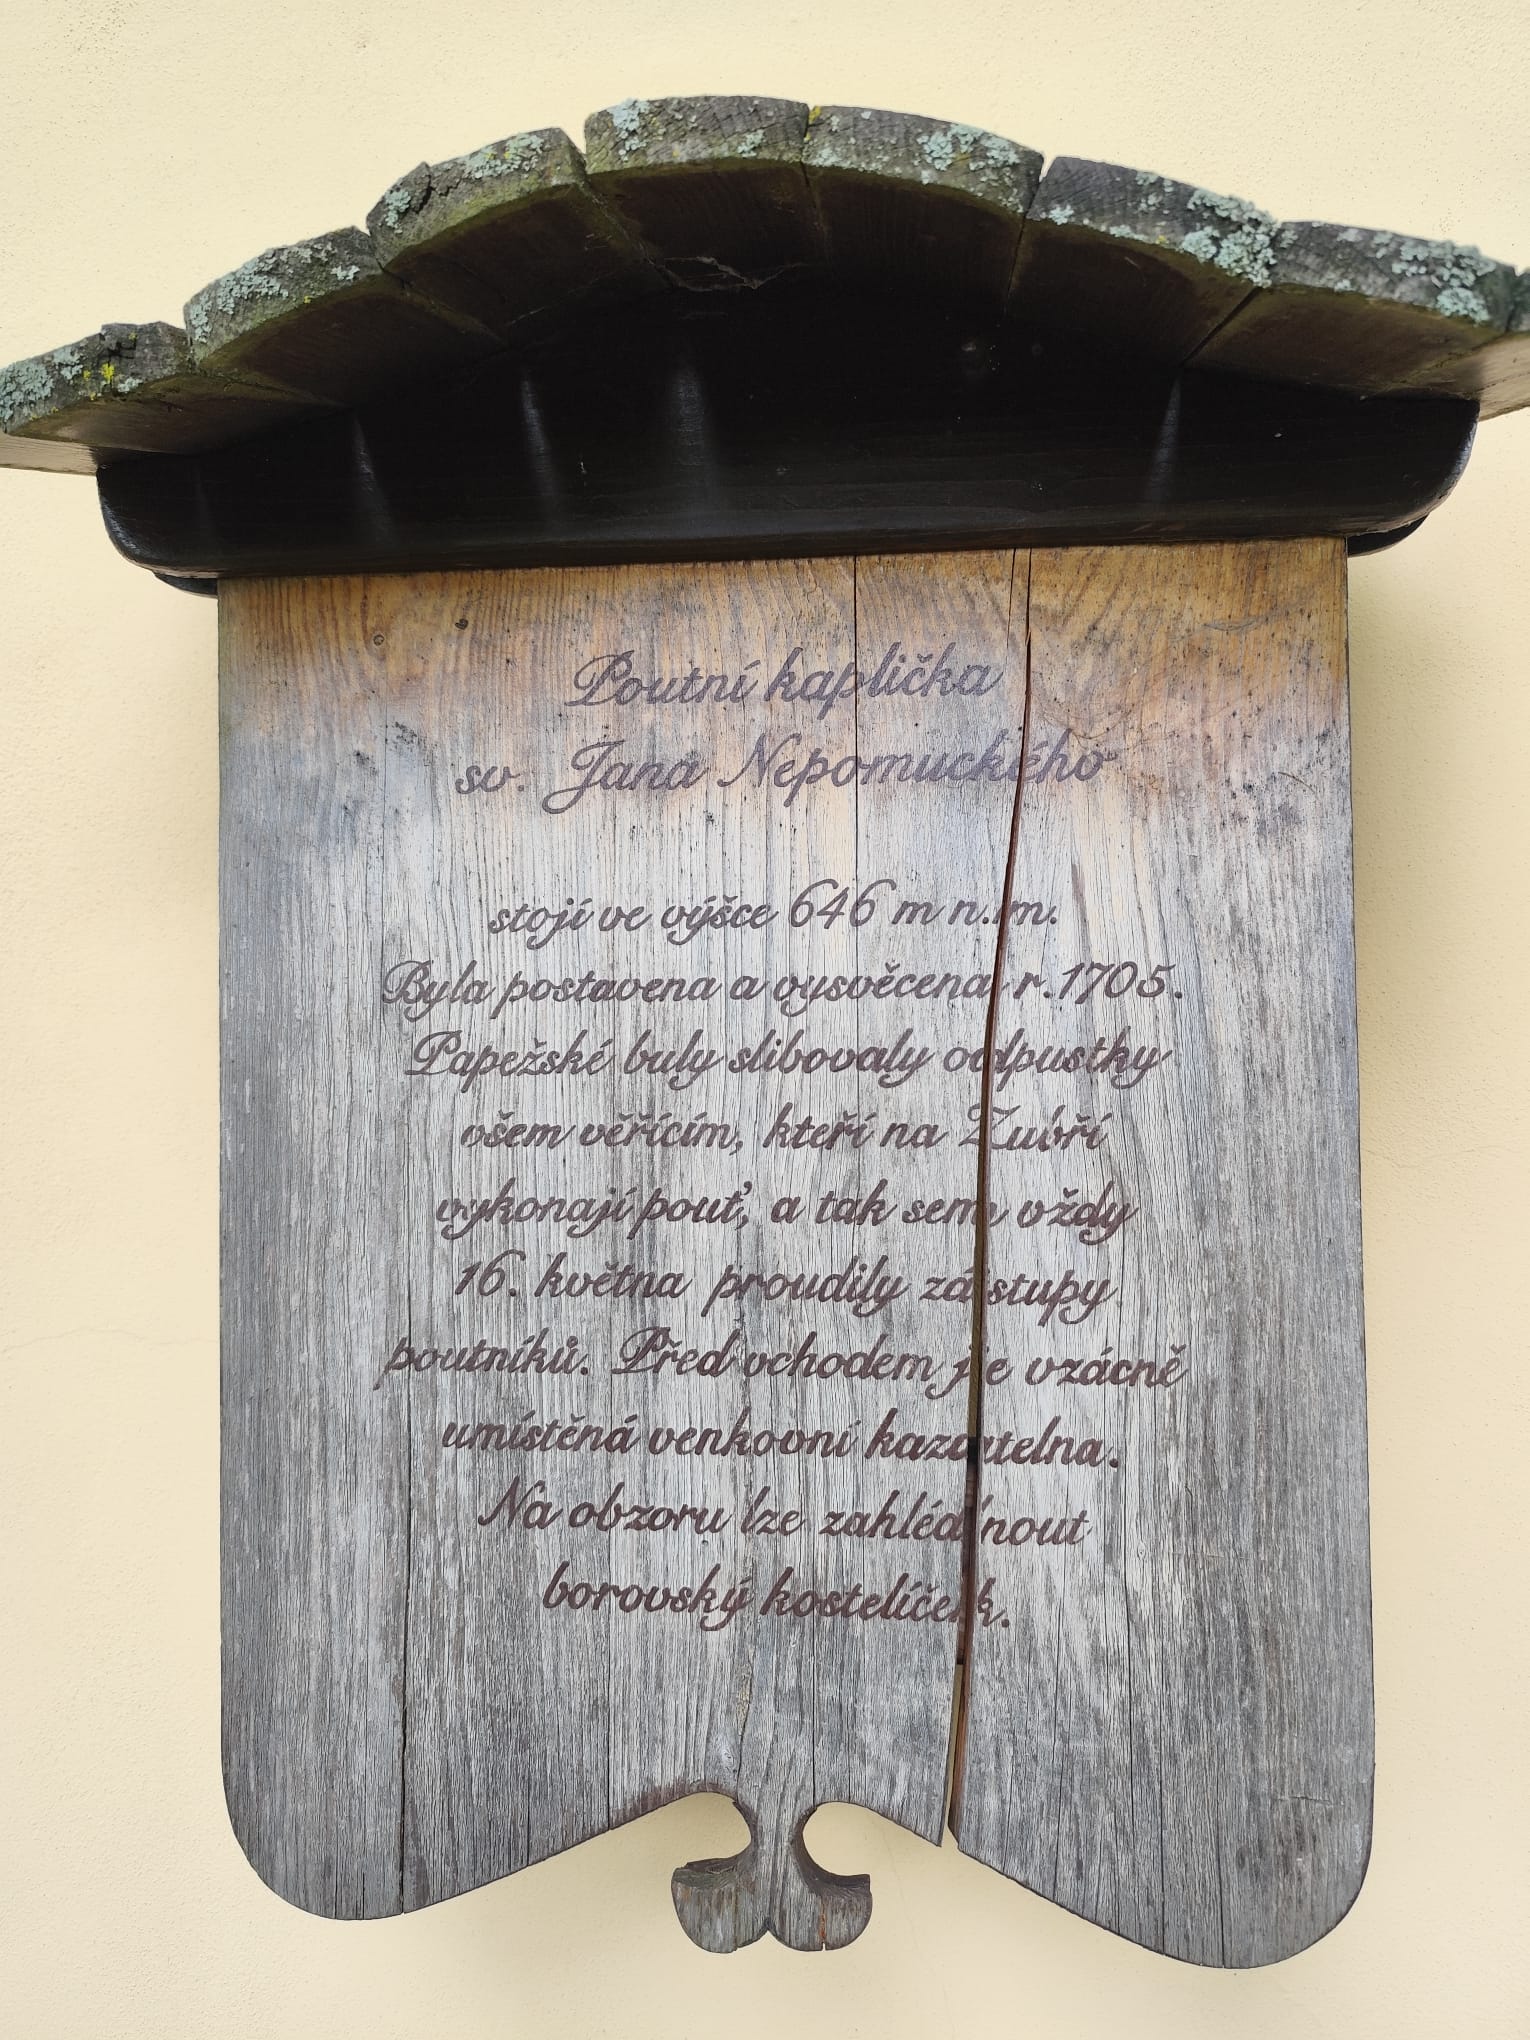 Poutní kaplička
sv. Jana Nepomuckého
stojí ve výšce 646 m n. m.
Byla postavena a vysvěcena r. 1705.
Papežské buly slibovaly odpustky
všem věřícím, kteří na Zubří
vykonají pouť, a tak sem vždy
16. května proudily zástupy
poutníků. Před vchodem je vzácně
umístěná venkovní kazatelna.
Na obzoru lze zahlédnout
borovský kostelíček.